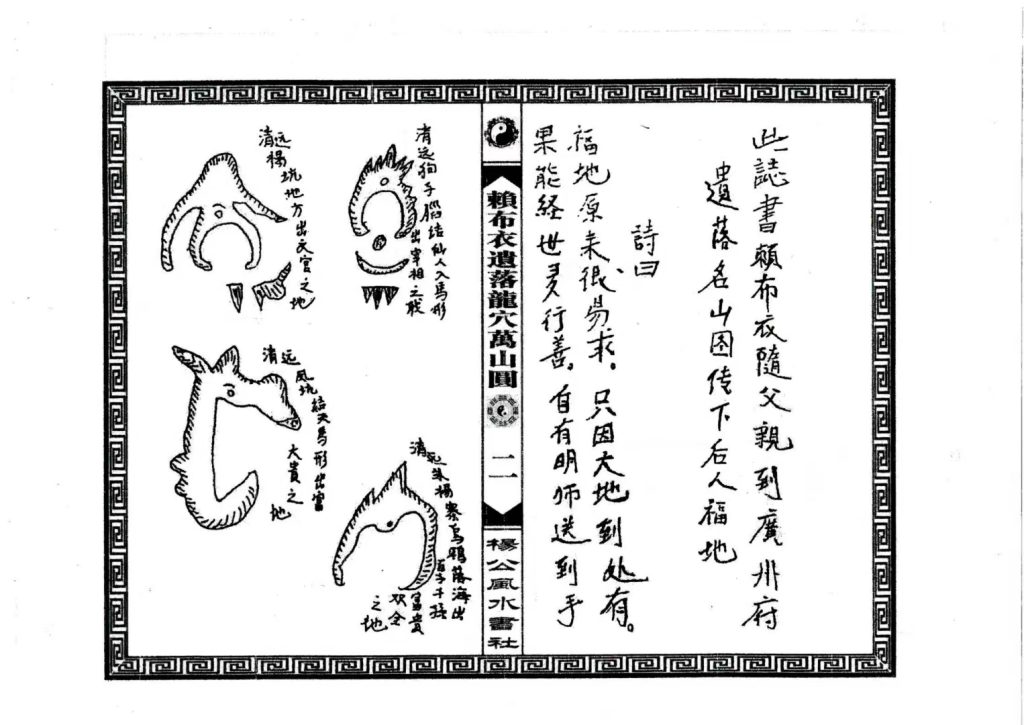 此誌書賴布衣隨父親到廣州府
遺落名山图传下后人福地
詩曰
福地原来很易求．只因大地到处有。
果能経世多行善。自有明师送到手
賴布衣遺落龍穴萬山圓
二一
楊公風水書社
清远狗子腦结仙人入馬形
出宰相之戢
清远楊坑地方出氏官之地
清远朱楊寨烏鴉落海出
百子千孫
富貴
双全
之地
清远风坑结天馬形出富
大貴之地